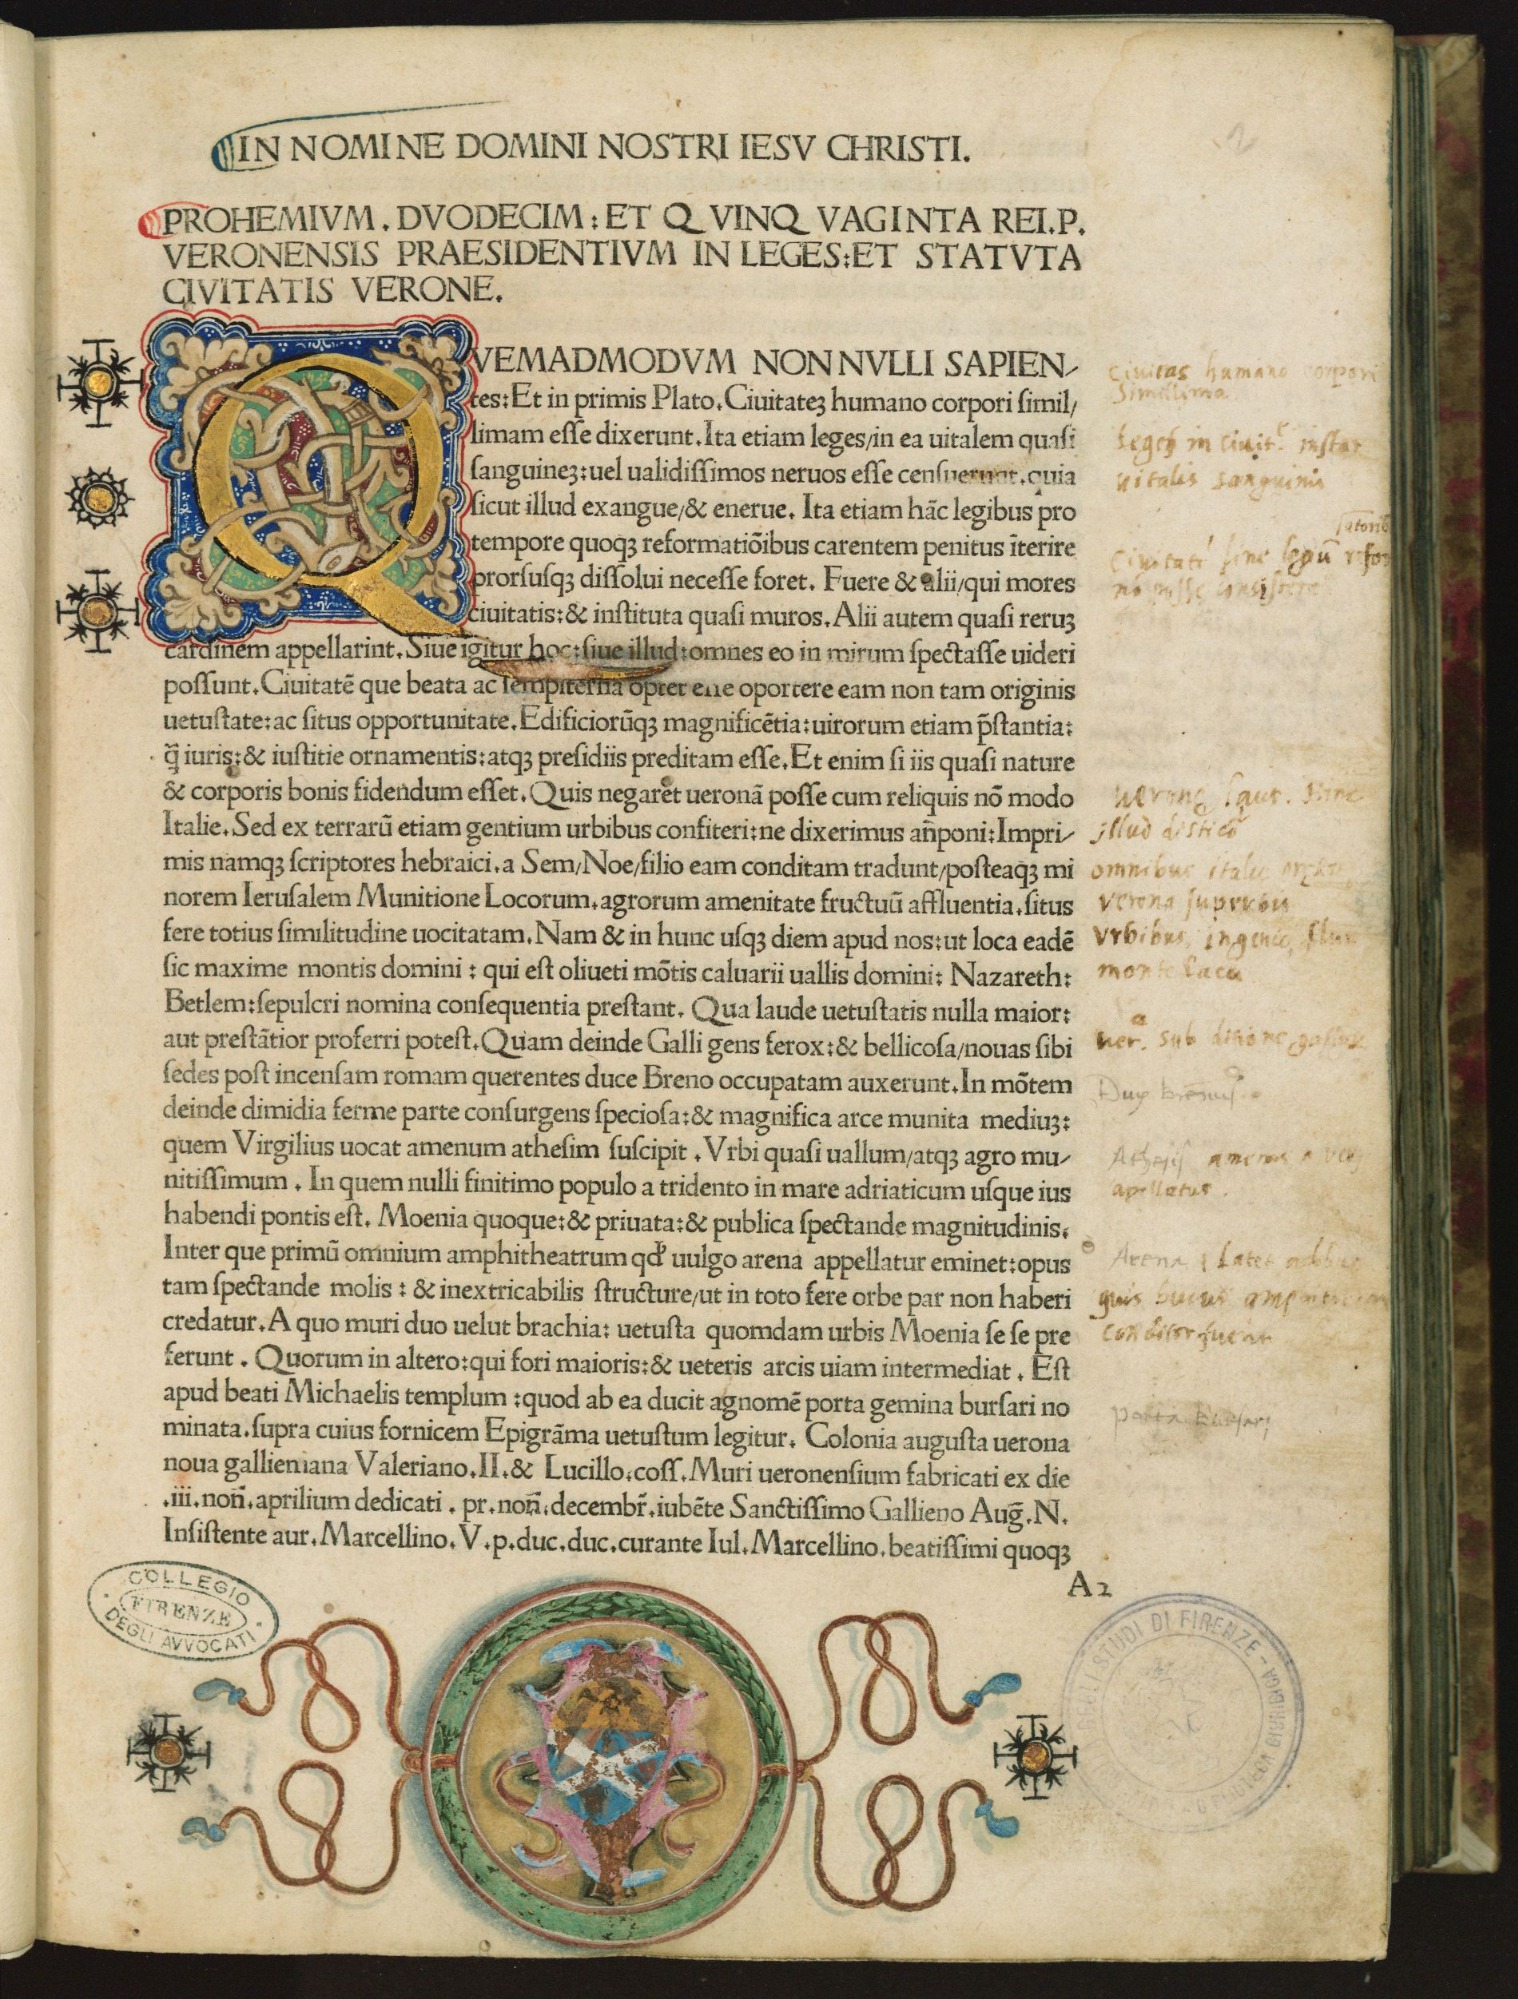 IN NOMINE DOMINI NOSTRI IESV CHRISTI.
PROHEMIVM. DVODECIM: ET QVINQVAGINTA REI.P.
VERONENSIS PRAESIDENTIVM IN LEGES: ET STATVTA
CIVITATIS VERONE.
QVEMADMODVM NONNVLLI SAPIEN/
tes: Et in primis Plato. Ciuitateꝫ humano corpori ſimil/
limam eſſe dixerunt. Ita etiam leges/in ea uitalem quaſi
ſanguineꝫ: uel ualidiſſimos neruos eſſe cenſuerunt. quia
ſicut illud exangue/& enerue. Ita etiam hãc legibus pro
tempore quoqꝫ reformatiõibus carentem penitus ĩterire
prorſuſqꝫ diſſolui neceſſe foret. Fuere & alii/qui mores
ciuitatis: & inſtituta quaſi muros. Alii autem quaſi reruꝫ
cardinem appellarint. Siue igitur hoc: ſiue illud: omnes eo in mirum ſpectaſſe uideri
poſſunt. Ciuitatẽ que beata ac ſempiterna optet eſſe oportere eam non tam originis
uetuſtate: ac ſitus opportunitate. Edificiorũqꝫ magnificẽtia: uirorum etiam p̃ſtantia:
q̃ iuris: & iuſtitie ornamentis: atqꝫ preſidiis preditam eſſe. Et enim ſi iis quaſi nature
& corporis bonis fidendum eſſet. Quis negaret ueronã poſſe cum reliquis nõ modo
Italie. Sed ex terrarũ etiam gentium urbibus confiteri: ne dixerimus añponi: Impri/
mis namqꝫ ſcriptores hebraici. a Sem/Noe/filio eam conditam tradunt/poſteaqꝫ mi
norem Ieruſalem Munitione Locorum. agrorum amenitate fructuũ affluentia. ſitus
fere totius ſimilitudine uocitatam. Nam & in hunc uſqꝫ diem apud nos: ut loca eadẽ
ſic maxime montis domini: qui eſt oliueti mõtis caluarii uallis domini: Nazareth:
Betlem: ſepulcri nomina conſequentia preſtant. Qua laude uetuſtatis nulla maior:
aut preſtãtior proferri poteſt. Quam deinde Galli gens ferox: & bellicoſa/nouas ſibi
ſedes poſt incenſam romam querentes duce Breno occupatam auxerunt. In mõtem
deinde dimidia ferme parte conſurgens ſpecioſa: & magnifica arce munita mediuꝫ:
quem Virgilius uocat amenum atheſim ſuſcipit. Vrbi quaſi uallum/atqꝫ agro mu/
nitiſſimum. In quem nulli finitimo populo a tridento in mare adriaticum uſque ius
habendi pontis eſt. Moenia quoque: & priuata: & publica ſpectande magnitudinis.
Inter que primũ omnium amphitheatrum qd̕ uulgo arena appellatur eminet: opus
tam ſpectande molis: & inextricabilis ſtructure/ut in toto fere orbe par non haberi
credatur. A quo muri duo uelut brachia: uetuſta quomdam urbis Moenia ſe ſe pre
ferunt. Quorum in altero: qui fori maioris: & ueteris arcis uiam intermediat. Eſt
apud beati Michaelis templum: quod ab ea ducit agnomẽ porta gemina burſari no
minata. ſupra cuius fornicem Epigrãma uetuſtum legitur. Colonia auguſta uerona
noua gallieniana Valeriano. II. & Lucillo. coſſ. Muri ueronenſium fabricati ex die
.iii. noñ. aprilium dedicati. pr. noñ. decembr̃. iubẽte Sanctiſſimo Gallieno Aug̃. N.
Inſiſtente aur. Marcellino. V. p. duc. duc. curante Iul. Marcellino. beatiſſimi quoqꝫ
A2
Ciuitas humano corpori
Simillima
Leges in ciuit. instar
uitalis sanguinis
illud disticõ
omnibus italie
Verona superbis
Vrbibus, ingenio,
monte lacu
Dux
Athesis amenus a
apellatus.
Arena
porta Bursari
COLLEGIO
FIRENZE
DEGLI AVVOCATI
DEGLI STUDI DI FIRENZE